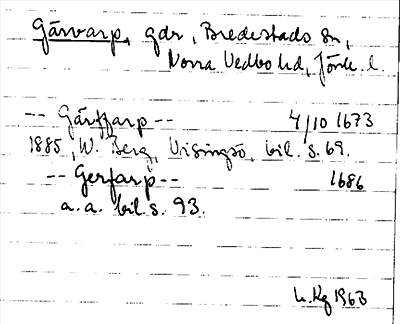 Gärvarp, gdr, Bredestads sn,
Norra Vedbo hd, Jönk. l.
-- Gärffarp -- 4/10 1673
1885, W. Berg, Visingsö, bil. s. 69.
-- Gerfarp -- 1686
a. a. bil. s. 93.
1963